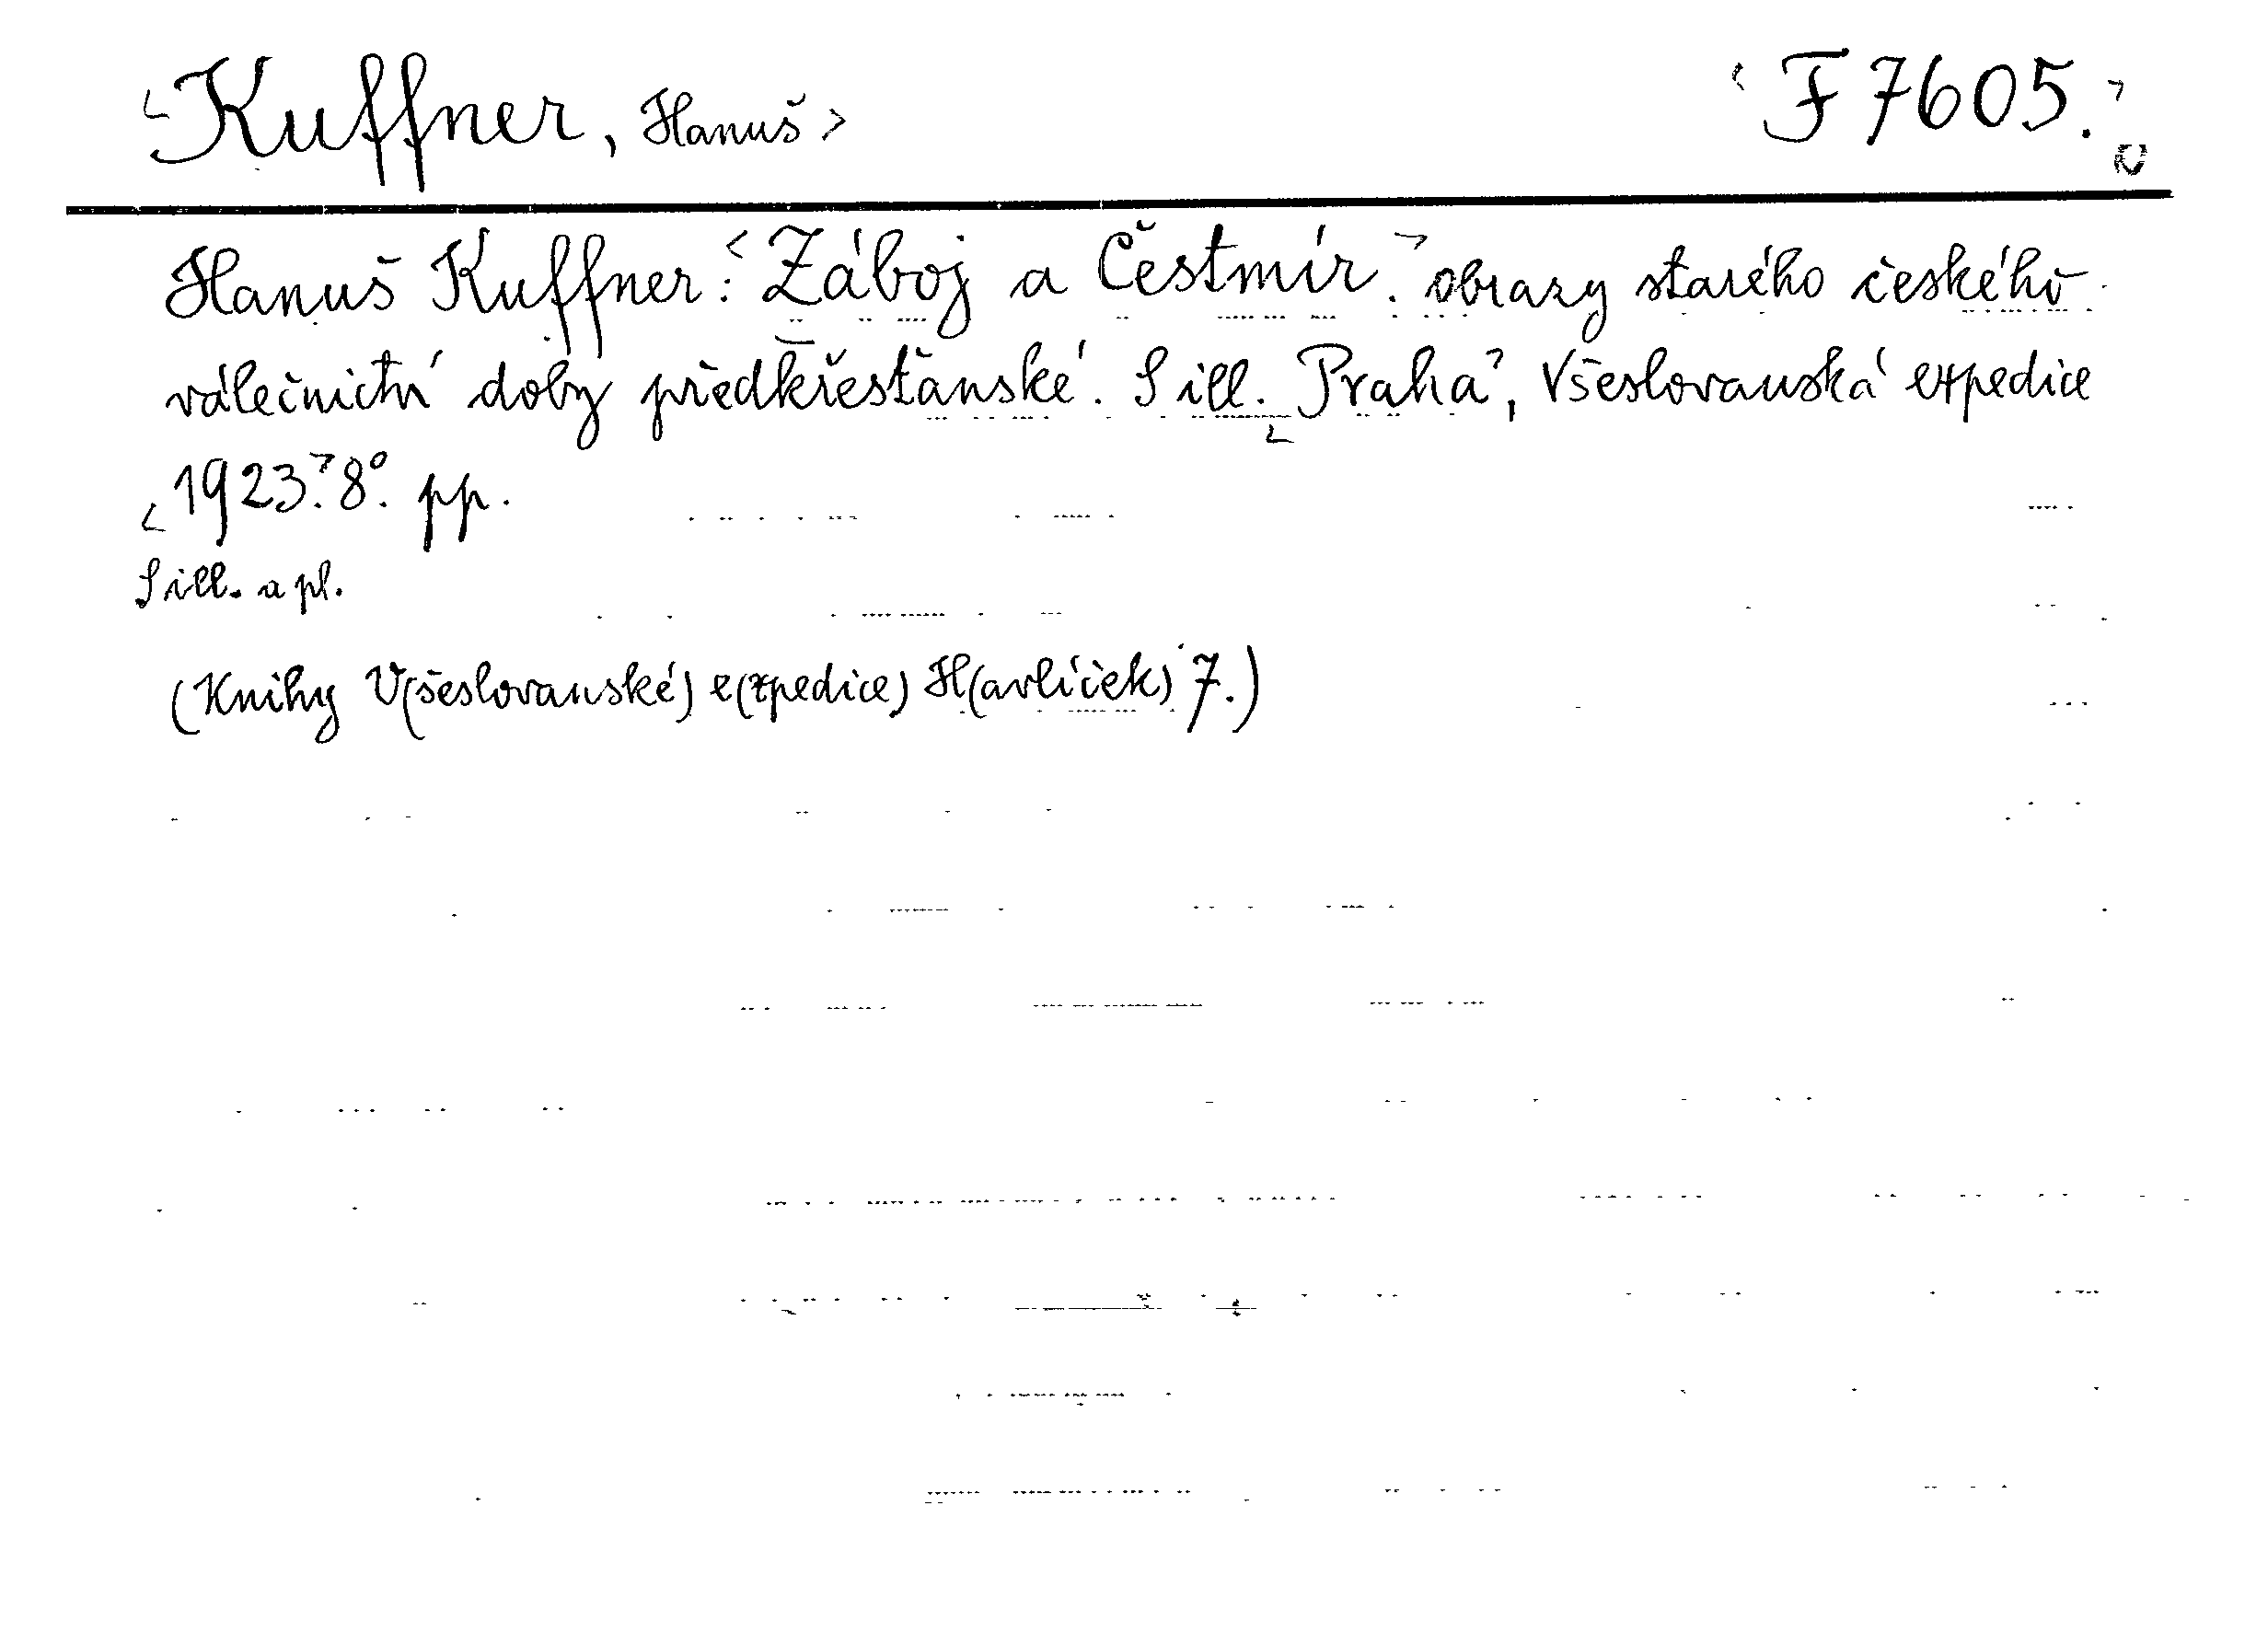 <Kuffner, Hanuš> <F 7605.>
Hanuš Kuffner: <Záboj a Čestmír.> obrazy starého českého
válečnictví doby předkřesťanské. S ill. <Praha>, Všeslovanská expedice
<1923.> 8°. pp.
S ill. a pl.
(Knihy V(šeslovanské) e(xpedice) H(avlíček) 7.)